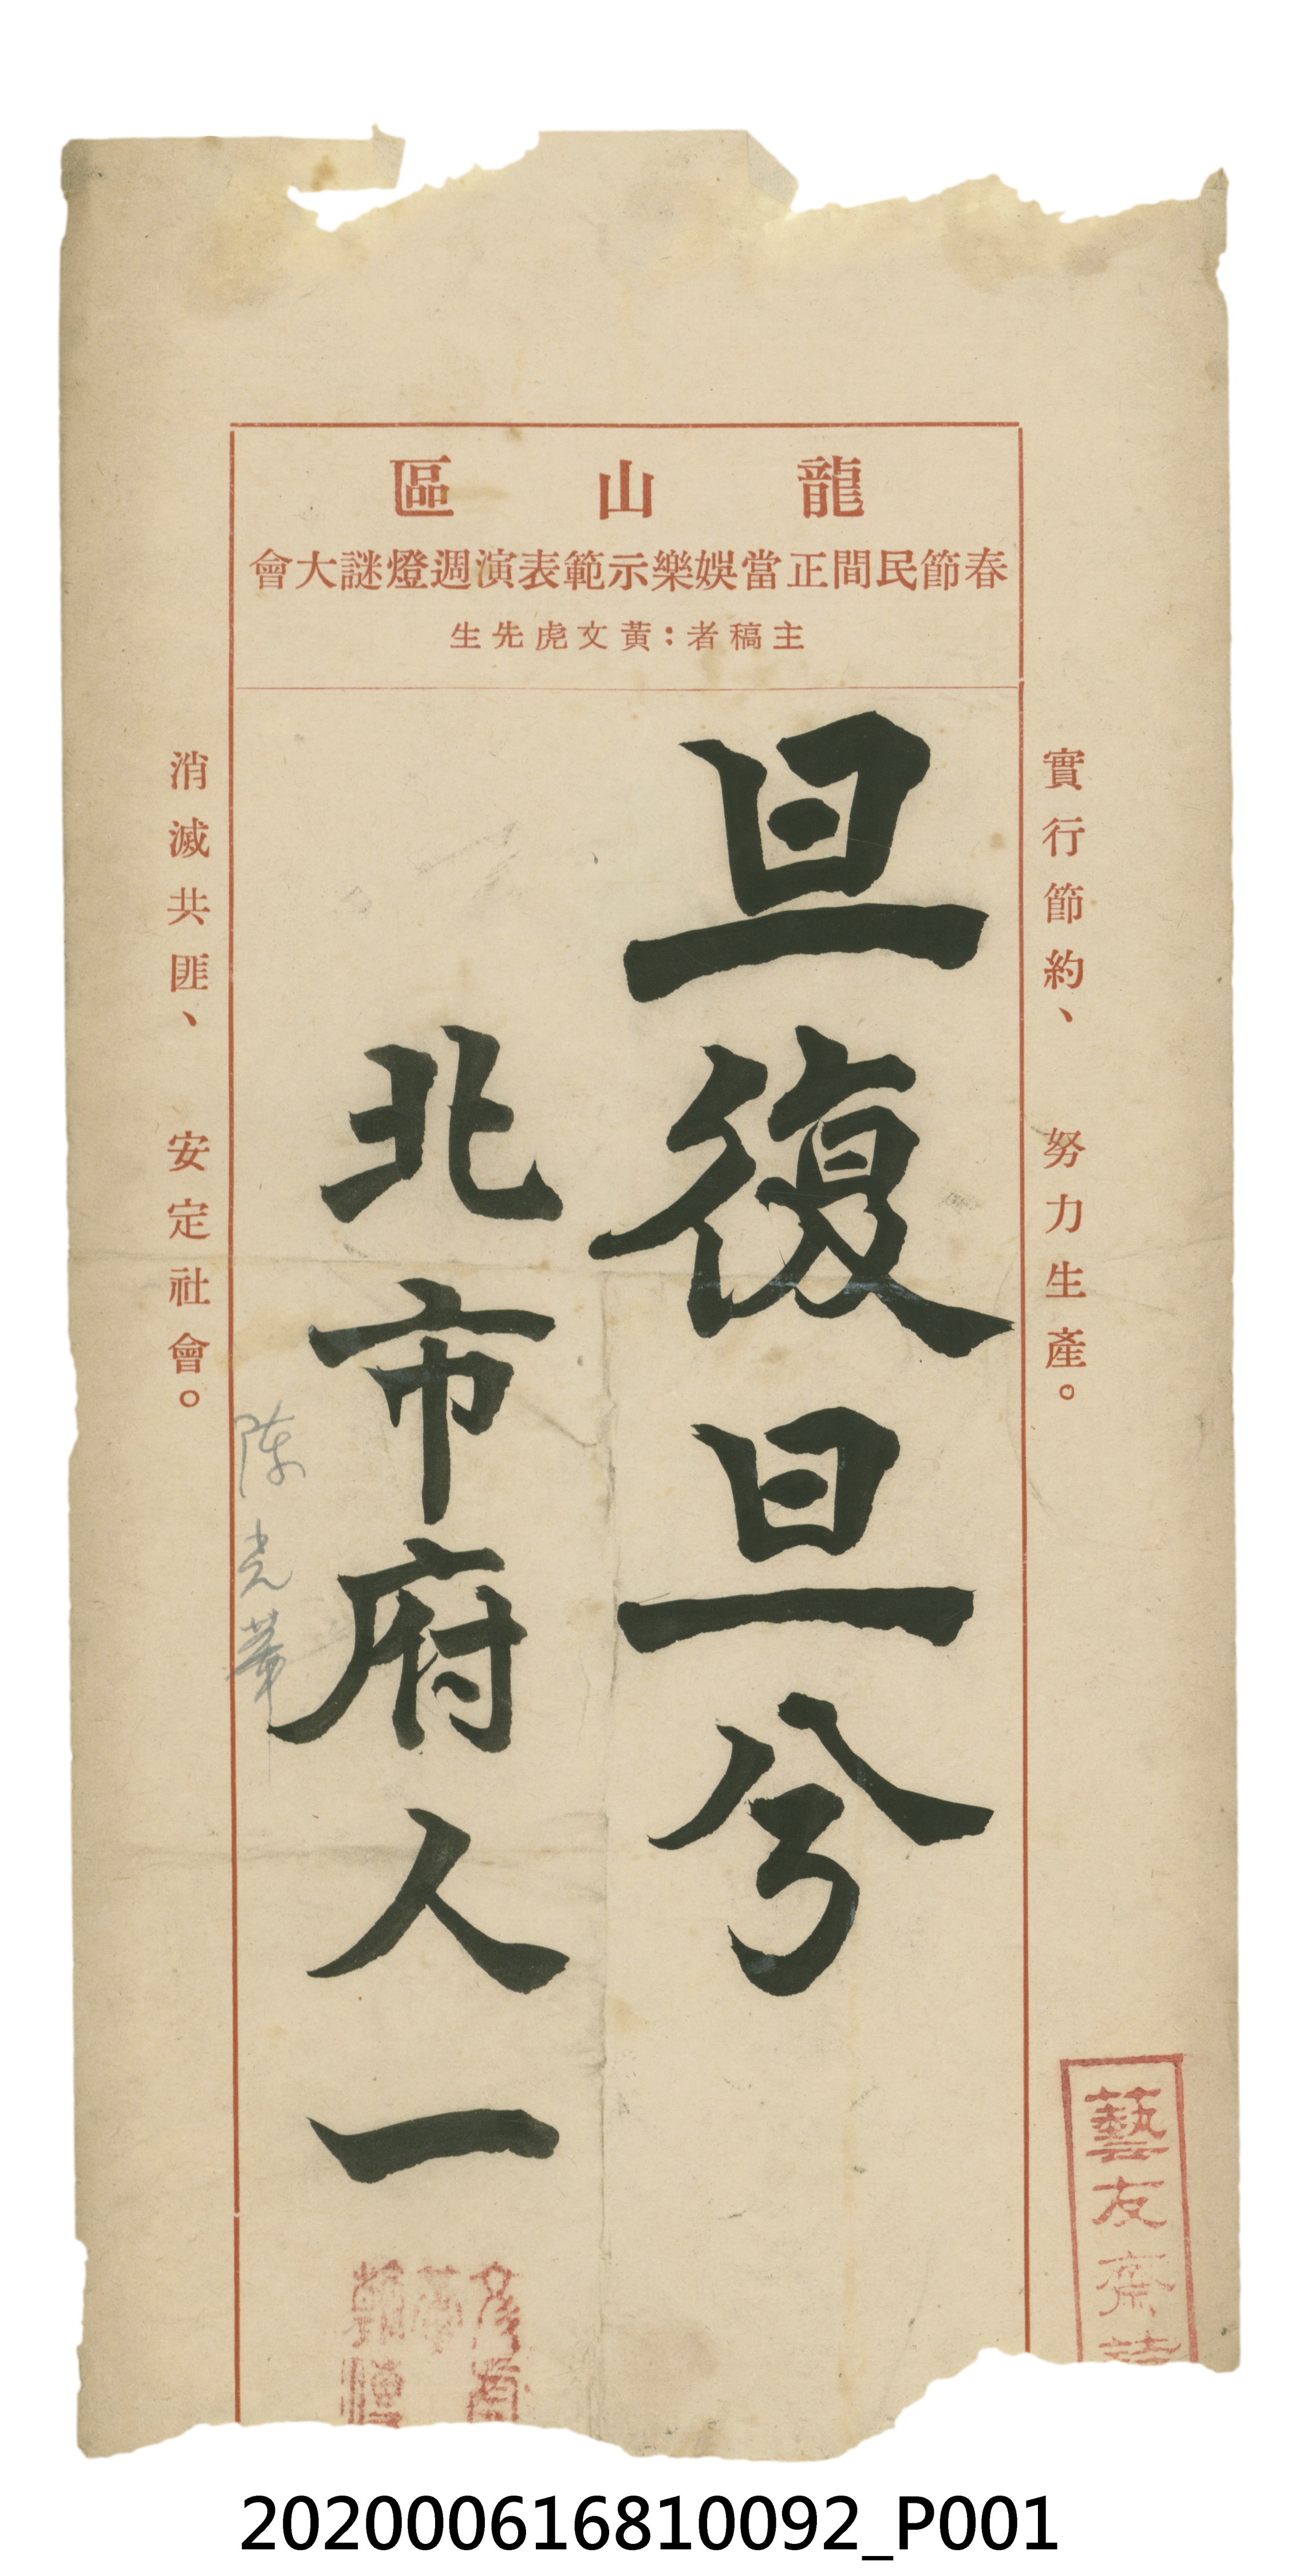 龍山區
春節民間正當娛樂示範表演週燈謎大會
主稿者：黃文虎先生
實行節約、努力生產。
旦復旦兮
北市府人一
陈光華
消滅共匪、安定社會。
藝友齋
202000616810092_P001